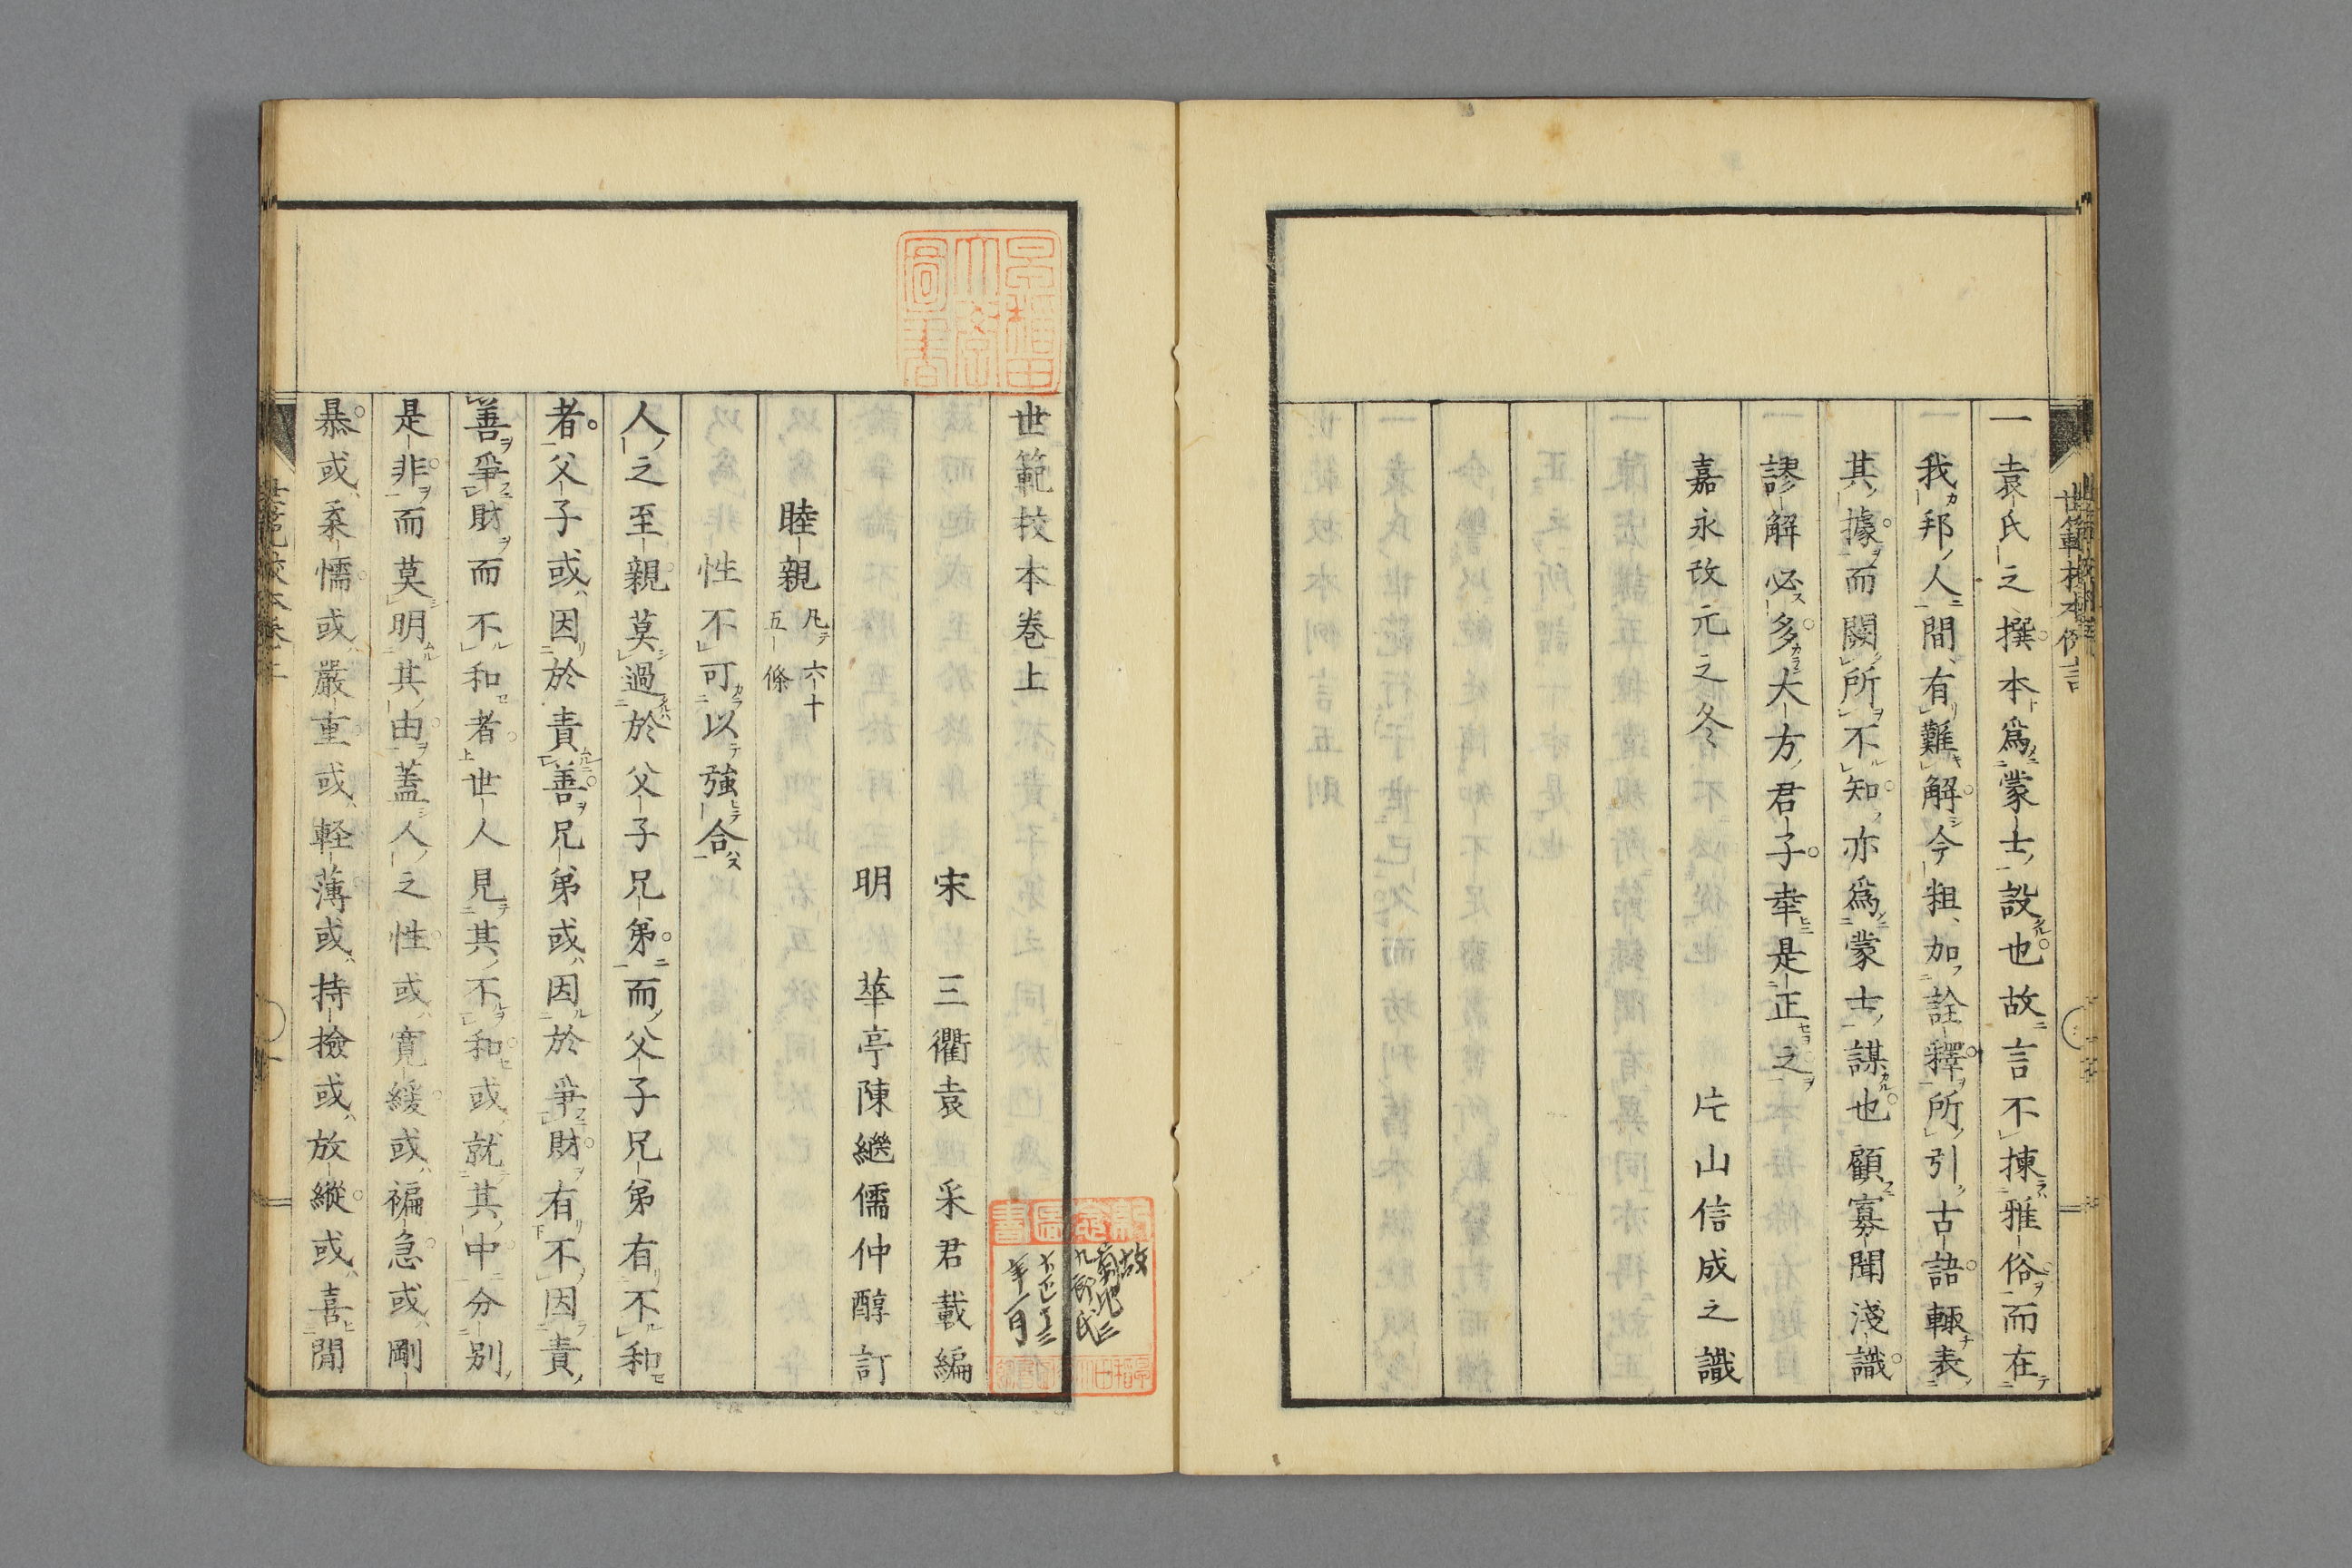 一袁氏之撰本爲蒙士設也故言不揀雅俗而在
我邦人間有難解今粗加詮釋所引古語輙表
其據而闕所不知亦爲蒙士謀也顧寡聞淺識
謬解必多大方君子幸是正之
嘉永改元之冬
片山信成之識
世範校本例言
世範校本巻上
宋 三衢袁 采君載編
明 華亭陳繼儒仲醇訂
睦親 凡六十五條
性不可以強合
人之至親莫過於父子兄弟而父子兄弟有不和
者父子或因於責善兄弟或因於爭財有不因責
善爭財而不和者世人見其不和或就其中分別
是非而莫明其由蓋人之性或寛緩或褊急或剛
暴或柔懦或嚴重或軽薄或持撿或放縱或喜閒
早稲田大學圖書